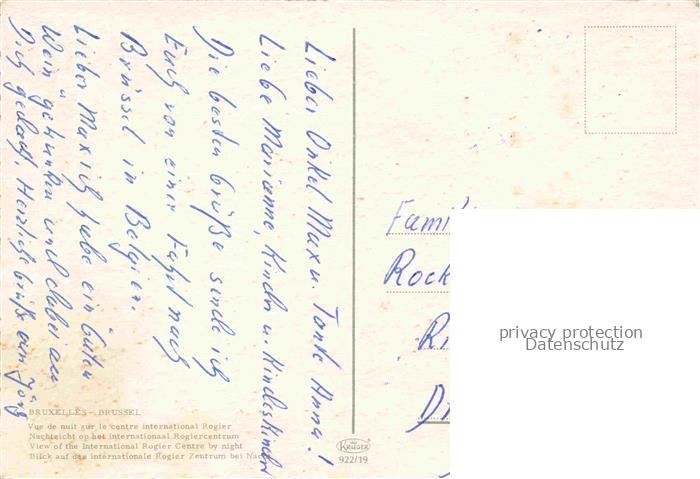 Lieber Onkel Max u. Tante Anna!
Liebe Marianne, Kinder u. Kindeskinder
Die besten Grüße sende ich
Euch von einer Fahrt nach
Brüssel in Belgien.
Lieber Max ich habe ein Guten
Wein getrunken und dabei an
Dich gedacht. Herzliche Grüße von Jörg
Fami
Rock
BRUXELLES - BRUSSEL
Vue de nuit sur le centre international Rogier
Nachtzicht op het internationaal Rogiercentrum
View of the International Rogier Centre by night
Blick auf das internationale Rogier Zentrum bei Na
KRÜGER
922/19
privacy protection
Datenschutz